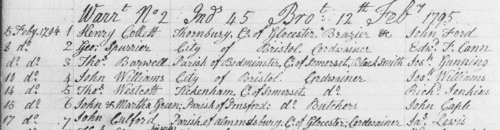 Warr.t No 2 Ind.s 45 Bro.t 12.th Feb.y 1795
5 Feby. 1794 1 Henry Collett Thornbury, C.o of Glocester Brazier &c John Ford
8 d.o 2 Geo. Spurrier City of Bristol Cordwainer Edw.d F. Cann
d.o d.o 3 Tho.s Barwell Parish of Bedminster, C.o of Somerset, Black Smith Jos. Gunning
10 d.o 4 John Williams City of Bristol Cordwainer Jos. Williams
14 d.o 5 Tho.s Westcott Tickenham, C. of Somerset d.o Rich.d Jenkins
16 d.o 6 John & Martha Green; Parish of Pensford; d.o Butchers John Caple
17 d.o 7 John Culford Parish of Almondsbury, C. of Glocester; Cordwainer Ja.s Lewis